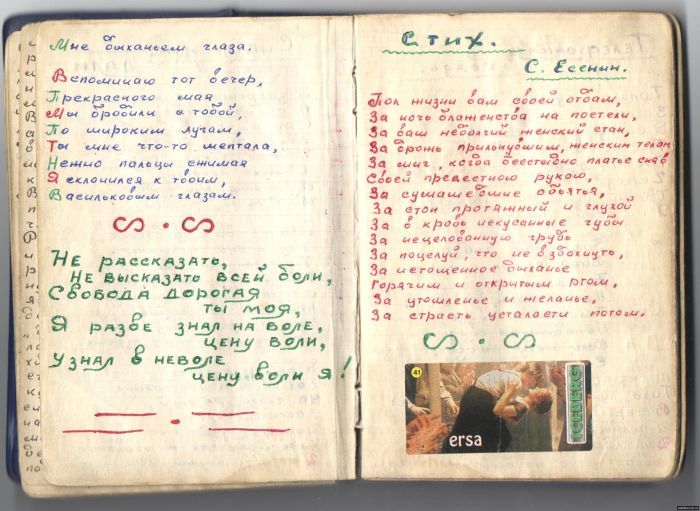 Мне дыханьем глаза.
Вспоминаю тот вечер,
Прекрасного мая
Мы бродили с тобой,
По широким лучам,
Ты мне что-то шептала,
Нежно пальцы сжимая
Я склонился к твоим,
Васильковым глазам.
Не рассказать,
Не высказать всей боли,
Свобода дорогая
ты моя,
Я разве знал на воле,
цену воли,
Узнал в неволе
цену воли я!
Стих.
С. Есенин.
Пол жизни вам своей отдам,
За ночь блаженства на постели,
За ваш недолгий женский стан,
За дрожь прильнувшим, женским телам
За миг, когда бесстыдно платье сняв
Своей прелестною рукою,
За сумашедшие объятья,
За стон протяжный и глухой
За в кровь искусанные губы
За нецелованную грудь
За поцелуй, что не вздохнуть,
За истощенное дыханье
Горячим и открытым ртом,
За утомленье и желанье,
За страсть усталости потом.
41
ersa
ICEBERG